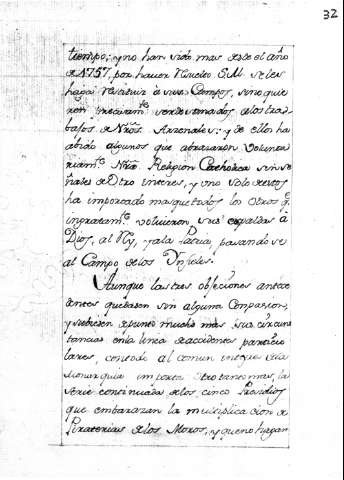 32
tiempo; y no han sido mas desde el año
de 1757, por haver resuelto S.M. se les
haga restituir à sus Campos, sino quie
ren recivam.te ser destinados a los tra-
bajos de Nrõs Arsenales: y de ellos ha
abido algunos que abrazaron volunta
riam.te Nrã Religion Catholica sin se
ñales de Otro interes, y uno solo de estos
ha importado mas que todos los otros q.e
ingratam.te volvieron sus espaldas à
Dios, al Rey, y a la Patria, pasandose
al Campo de los Ynfieles.
Aunque las tres objeciones antece
dentes quedasen sin alguna Compasion,
y subiesen de punto mucho mas sus circuns
tancias en la linea de accidentes particu
lares, con todo al comun interes de la
Monarquia importa otro tanto mas, la
serie continuada de los cinco Presidios
que embarazan la multiplicacion de
Piraterias de los Moros, y que no hagan